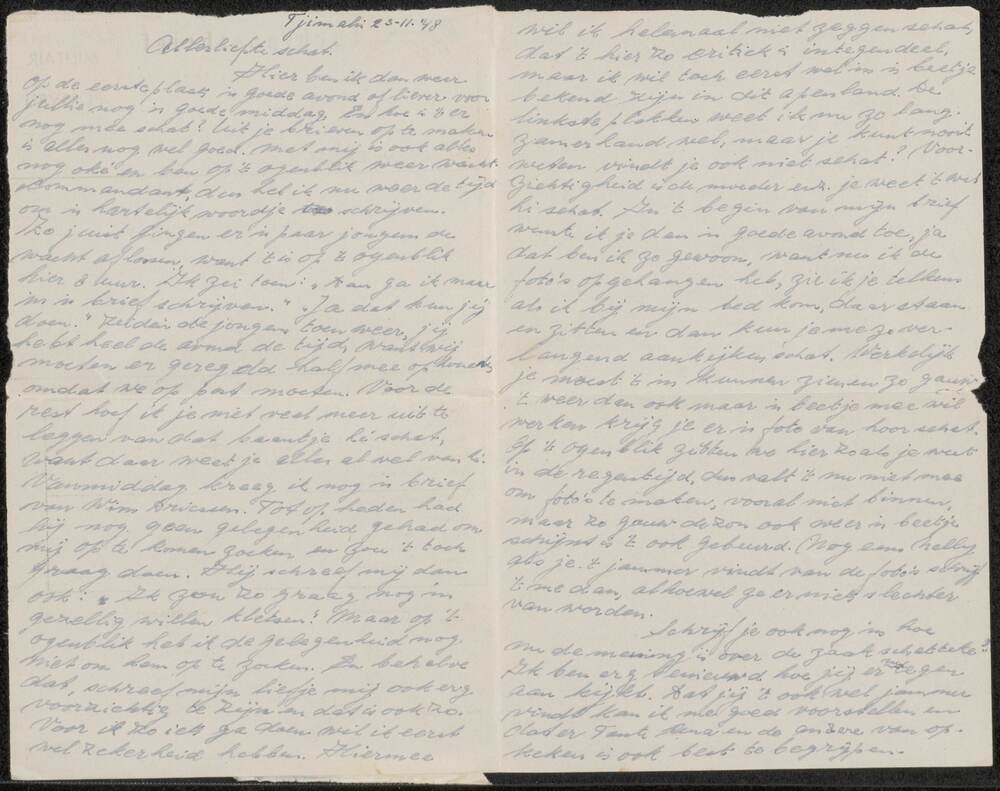 Tjimahi 23-11-'48
Allerliefste schat.
Hier ben ik dan weer
op de eerste plaats 'n goede avond of liever voor
jullie nog 'n goede middag. En hoe is 't er
nog mee schat? Uit je brieven op te maken
is alles nog wel goed. Met mij is ook alles
nog oké en ben op 't ogenblik weer wacht-
commandant, dus heb ik nu weer de tijd
om 'n hartelijk woordje te schrijven.
Zo juist gingen er 'n paar jongens de
wacht aflossen, want 't is op 't ogenblik
hier 8 uur. Ik zei toen: "Dan ga ik maar
m'n brief schrijven." "Ja dat kun jij
doen." Zeiden de jongens toen weer, jij
hebt heel de avond de tijd, want wij
moeten er geregeld half mee ophouden,
omdat we op pat moeten. Voor de
rest hoef ik je niet veel meer uit te
leggen van dat baantje hè schat,
want daar weet je alles al wel van hè.
Vanmiddag kreeg ik nog 'n brief
van Wim Driesen. Tot op heden had
hij nog geen gelegenheid gehad om
mij op te komen zoeken en zou 't toch
graag doen. Hij schreef mij dan
ook: "Ik zou zo graag nog 'n
gezellig willen kletsen! Maar op 't
ogenblik heb ik de gelegenheid nog
niet om hem op te zoeken. En behalve
dat, schreef mijn liefje mij ook erg
voorzichtig te zijn en dat is ook zo.
Voor ik zo iets ga doen wil ik eerst
wel zekerheid hebben. Hiermee
wil ik helemaal niet zeggen schat,
dat 't hier zo critiek is integendeel,
maar ik wil toch eerst wel m'n 'n beetje
bekend zijn in dit apenland. De
linkste plekken weet ik nu zo lang-
zamerhand wel, maar je kunt nooit
weten vindt je ook niet schat? Voor-
zichtigheid is de moeder enz. je weet 't wel
hè schat. In 't begin van mijn brief
wenste ik je dan 'n goede avond toe, ja
dat ben ik zo gewoon, want nu ik de
foto's opgehangen heb, zie ik je telkens
als ik bij mijn bed kom, daar staan
en zitten en dan kun je me zo ver-
langend aankijken schat. Werkelijk
je moest 't 'ns kunnen zien en zo gauw
't weer dan ook maar 'n beetje mee wil
werken krijg je er 'n foto van hoor schat.
Op 't ogenblik zitten we hier zoals je weet
in de regentijd, dus valt 't nu niet mee
om foto's te maken, vooral niet binnen,
maar zo gauw de zon ook weer 'n beetje
schijnt is 't ook gebeurd. Nog eens
als je 't jammer vindt van de foto's schrijf
't me dan, alhoewel ze er niet slechter
van worden.
Schrijf je ook nog 'ns hoe
nu de mening is over de zaak schatteke?
Ik ben erg benieuwd hoe jij er tegen
aan kijkt. Dat jij 't ook wel jammer
vindt kan ik me goed voorstellen en
dat er Tante Dena en de andere van op-
keken is ook best te begrijpen.